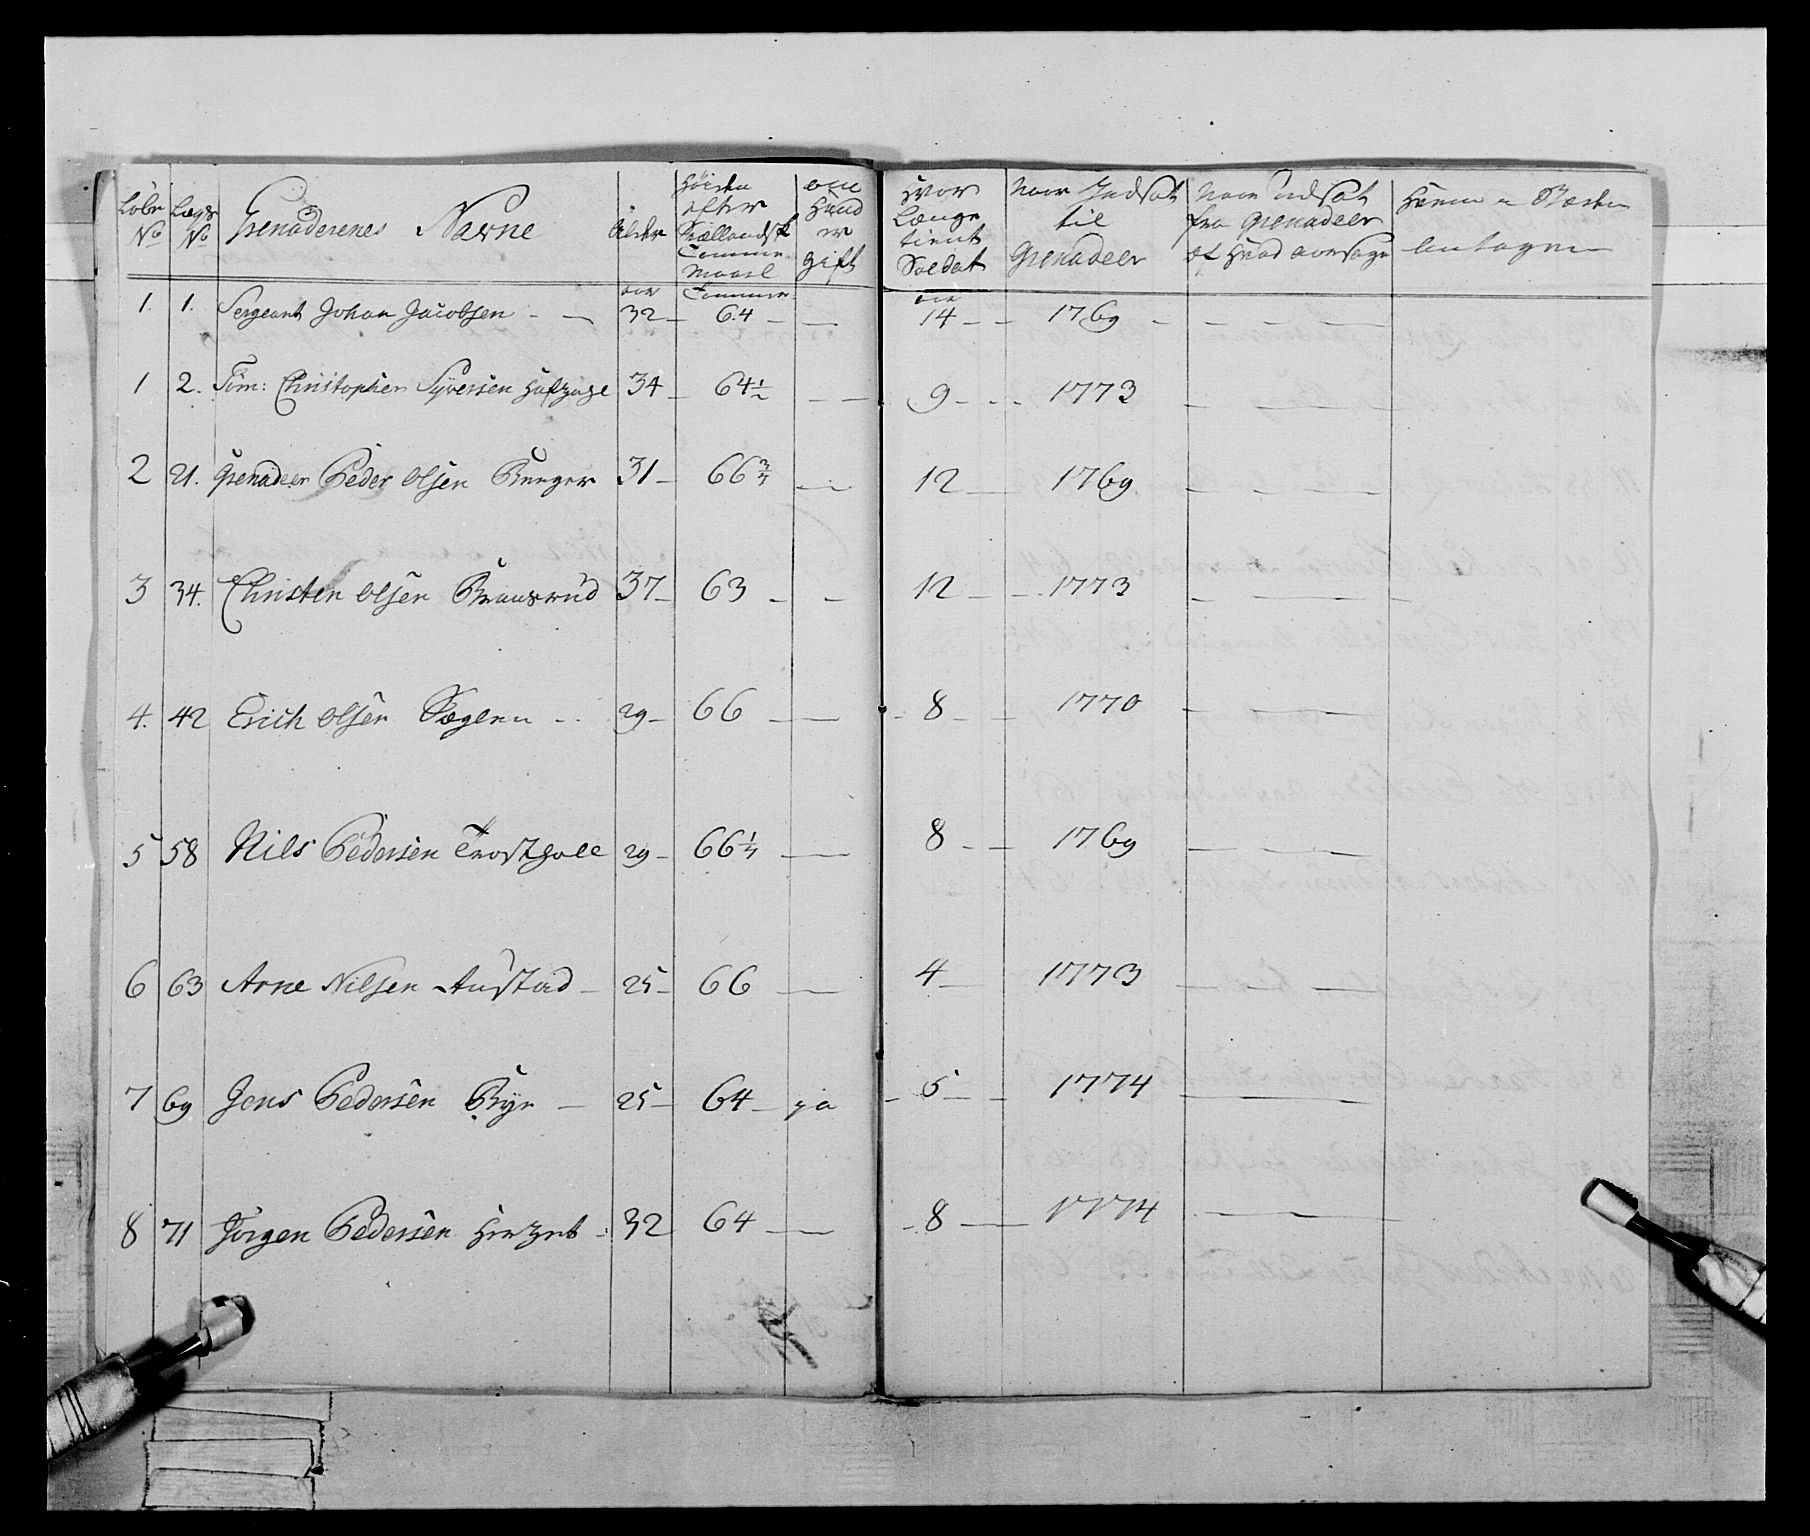 Løbe No | Lægs No | Grenaderenes Navne | Alder | Høiden efter Siællandsk Tomme Maael | om hand er gift | Hvor Længe tient Soldat | Naar Indsat til Grenadeer | Naar udsat fra Grenadeer | antagen
aar | Tommer | aar
1. | 1. | Sergeant Johan Jacobsen - — | 32 — | 64 — | — | 14 — — | 1769 — | — — — —
1 | 2. | Tim: Christopher Syversen | 34 — | 64½ | — — | 9 — — | 1773 | — — —
2 | 21. | Grenadeer Peder Olsen Runger | 31 — | 66¾ | — — | 12 — | 1769 | — — —
3 | 34. | Christen Olsen | 37 — | 63 — | — | 12 — | 1773 | — — —
4. | 42 | Erich Olsen - - | 29 — | 66 — | — | 8 — — | 1770 | — — —
5 | 58 | Nils Pedersen | 29 — | 66¼ | — | 8 — — | 1769 | — — —
6 | 63 | Arne Nilsen Austad — | 25 — | 66 | — | 4 — | 1773 | — — —
7 | 69 | Jens Pedersen Rye — | 25 — | 64 — | ja | 5 — — | 1774 | — — —
8 | 71 | Jörgen Pedersen | 32 | 64 — | — | 8 — | 1774 | — —